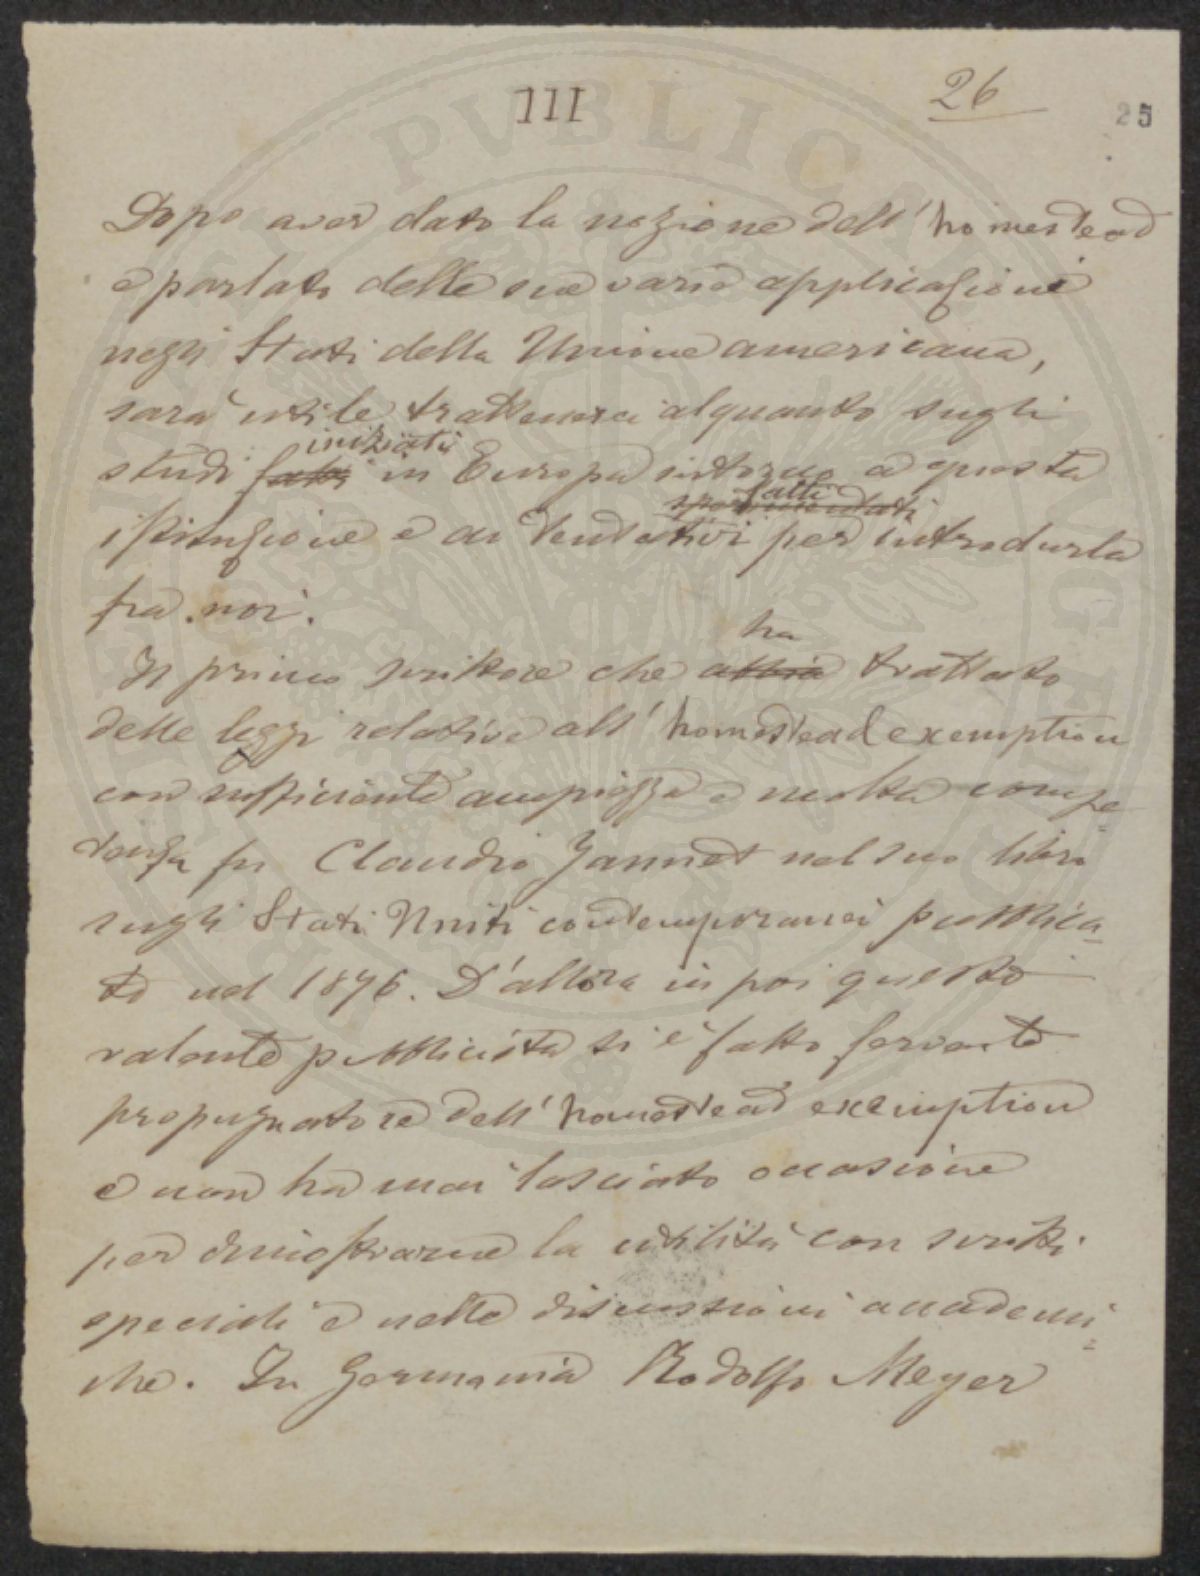 III
26
25
Dopo aver dato la nozione dell'homestead
e parlato delle sue varie applicazioni
negli Stati della Unione americana,
sarà utile trattenerci alquanto sugli
iniziati
studi fatti in Europa intorno a questa
fatti
sperimentati
istituzione e ai tentativi per introdurla
fra noi.
ha
Il primo scrittore che abbia trattato
delle leggi relative all'homestead exemption
con sufficiente ampiezza e molta compe-
tenza fu Claudio Jannet nel suo libro
sugli Stati Uniti contemporanei pubblica-
to nel 1876. D'allora in poi questo
valente pubblicista si è fatto fervente
propugnatore dell'homestead exemption
e non ha mai lasciato occasione
per dimostrarne la utilità con scritti
speciali e nelle discussioni accademi-
che. In Germania Rodolfo Meyer